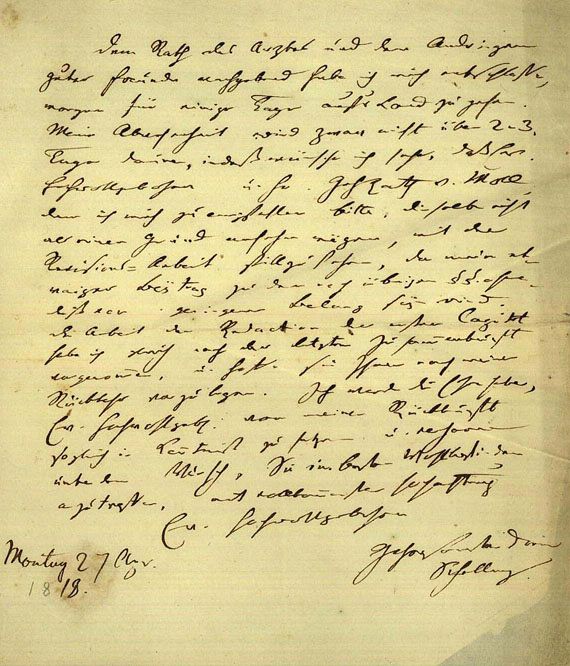 Dem Rath des Arztes und dem Andringen
guter Freunde nachgebend habe ich mich entschlossen,
morgen für einige Tage aufs Land zu gehen.
Meine Abwesenheit wird zwar nicht über 2-3
Tage dauern, indeß wünsche ich sehr, daß
Hochwohlgeboren u. Hr. Geh. Rath v. Moll,
dem ich mich zu empfehlen bitte, dieselbe nicht
als einen Grund ansehen mögen, mit der
Revisions-Arbeit stillzustehen, da mein
Beytrag zu den noch übrigen §§
geringem Belang seyn wird.
die Arbeit der Redaction der ersten Capitel
habe ich gleich nach der letzten Zusammenkunft
vorgenommen, u. hoffe sie Ihnen nach meiner
Rückkehr vorzulegen. Ich werde die Ehre haben,
Ew. Hochwohlgeb. von meiner Rückkunft
sogleich in Kenntniß zu setzen u.
unter dem Wunsch, Sie im besten Wohlseyn
anzutreffen, mit vollkommenster Hochachtung
Ew. Hochwohlgeboren
gehorsamster Diener
Schelling.
Montag 27 Apr.
1818.